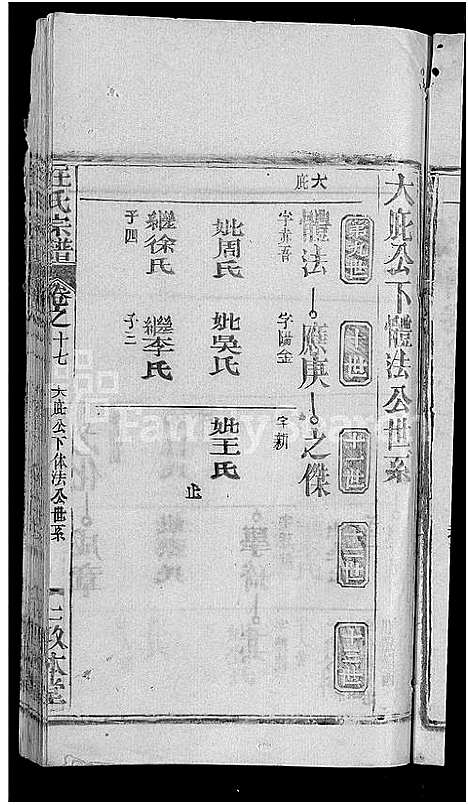 大庇公下體法公世系
第九世
十世
十一世
十二世
十三世
大庇
體法
字赤吾
妣周氏
繼徐氏
子四
應庚
字陽金
妣吳氏
繼李氏
子二
之傑
字新
妣王氏
止
汪氏宗譜
卷之十七
大庇公下体法公世系
敘本堂